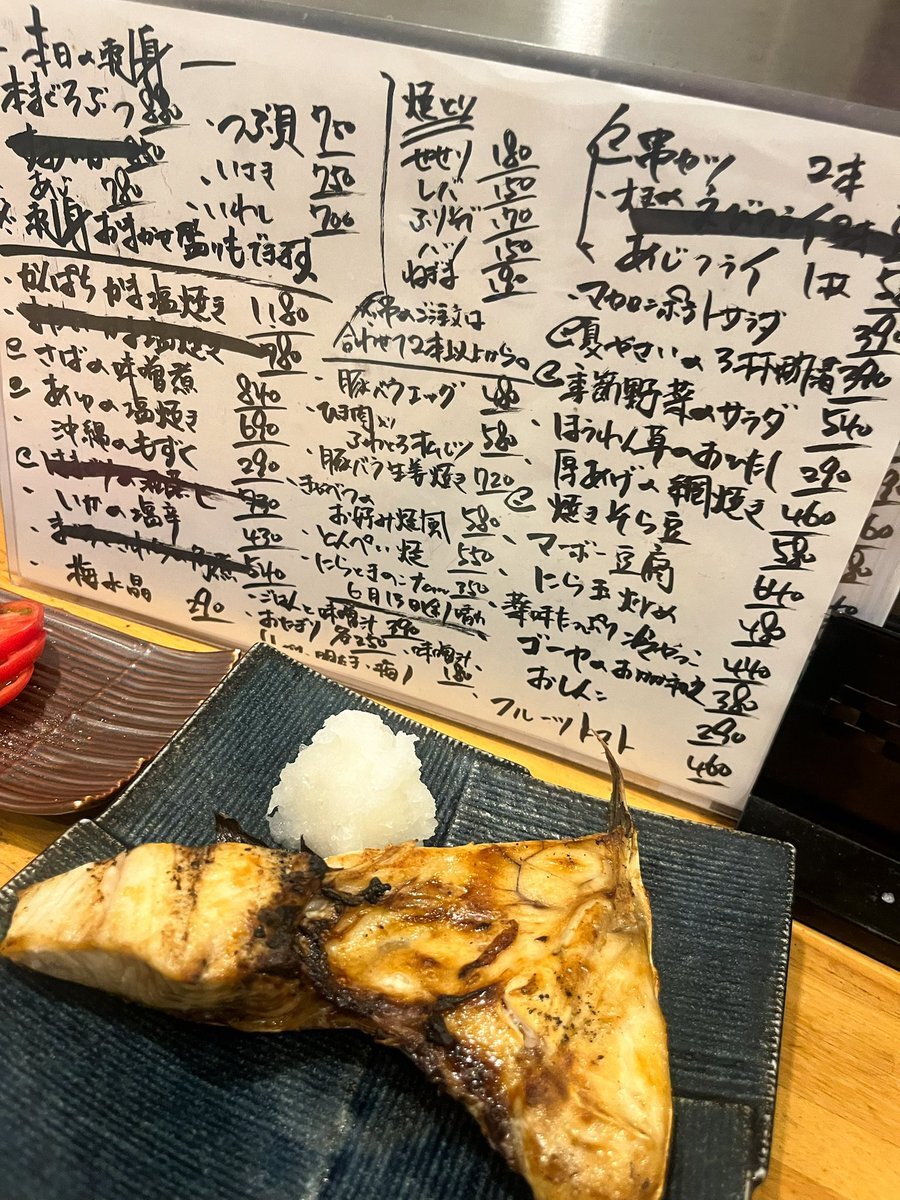 本日の刺身
本まぐろぶつ 880
あじ 780
・つぶ貝 750
・いさき 750
・いわし 700
刺身おまかせ盛りもできます
・かんぱちかま塩焼き 1180
780
さばの味噌煮 840
あゆの塩焼き 690
沖縄のもずく 290
いかの塩辛 430
540
・梅水晶 290
焼とり
せせり 180
レバー 150
ぶりぞで 170
ハツ 150
ねぎま 180
合わせて2本以上から。
・豚バラエッグ 480
・ひき肉入り
ふわとろオムレツ 580
・豚バラ生姜焼き 720
・キャベツの
お好み焼風 580
・とんぺい焼 550
350
6月13日(金)
・ごはんと味噌汁 390
・おにぎり 各250
・味噌汁 180
串カツ 2本
あじフライ 1枚
・マカロニポテトサラダ 390
夏やさいの 390
季節野菜のサラダ 540
ほうれん草のおひたし 290
厚あげの網焼き 460
焼きそら豆 580
マーボー豆腐 640
にら玉炒め 480
薬味たっぷり冷やっこ 440
ゴーヤのお 380
おしんこ 290
フルーツトマト 460